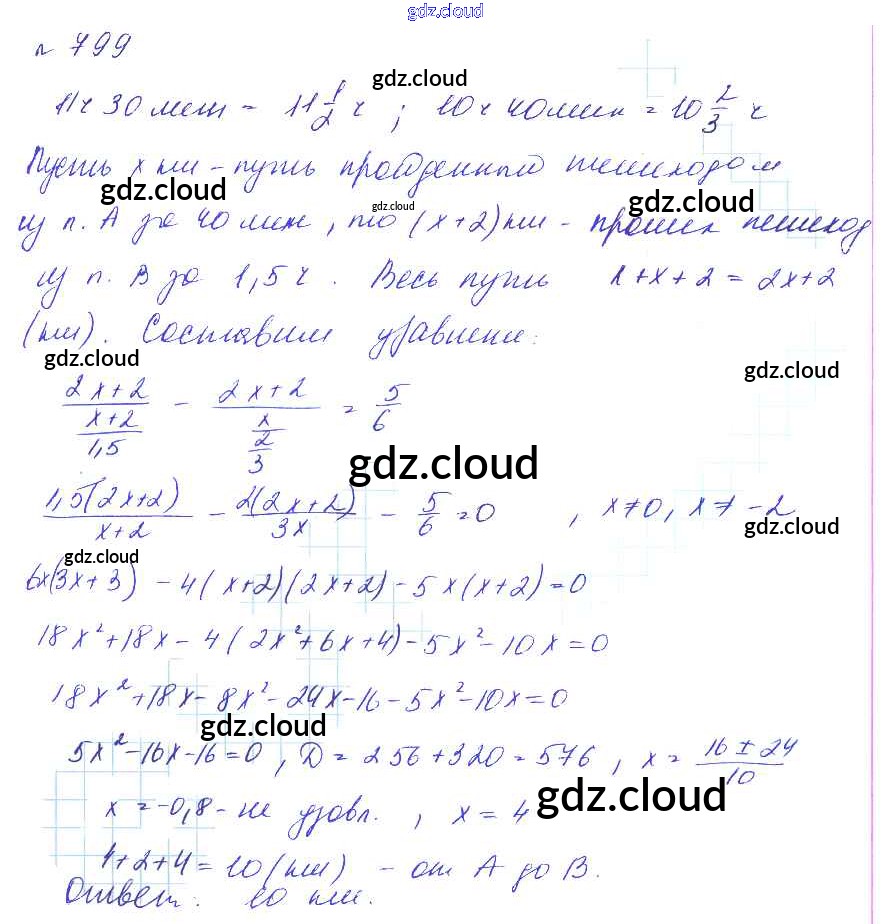 gdz.cloud
№ 799
gdz.cloud
11 ч 30 мин = 11 1/2 ч ; 10 ч 40 мин = 10 2/3 ч
Пусть x км - путь пройденный пешеходом
gdz.cloud gdz.cloud gdz.cloud
из п. А за 40 мин, то (x+2) км - прошел пешеход
из п. В за 1,5 ч. Весь путь x+x+2 = 2x+2
(км). Составим уравнение:
gdz.cloud gdz.cloud
(2x+2)/((x+2)/1,5) - (2x+2)/(x/(2/3)) = 5/6
gdz.cloud
1,5(2x+2)/(x+2) - 2(2x+2)/3x - 5/6 = 0 , x≠0, x≠-2
gdz.cloud gdz.cloud
6x(3x+3) - 4(x+2)(2x+2) - 5x(x+2) = 0
18x²+18x - 4(2x²+6x+4) - 5x² - 10x = 0
18x²+18x - 8x² - 24x - 16 - 5x² - 10x = 0
gdz.cloud
5x² - 16x - 16 = 0 , D = 256+320 = 576 , x = (16 ± 24)/10
gdz.cloud
x = -0,8 - не удовл. , x = 4
4+2+4 = 10 (км) - от А до В.
Ответ: 10 км.